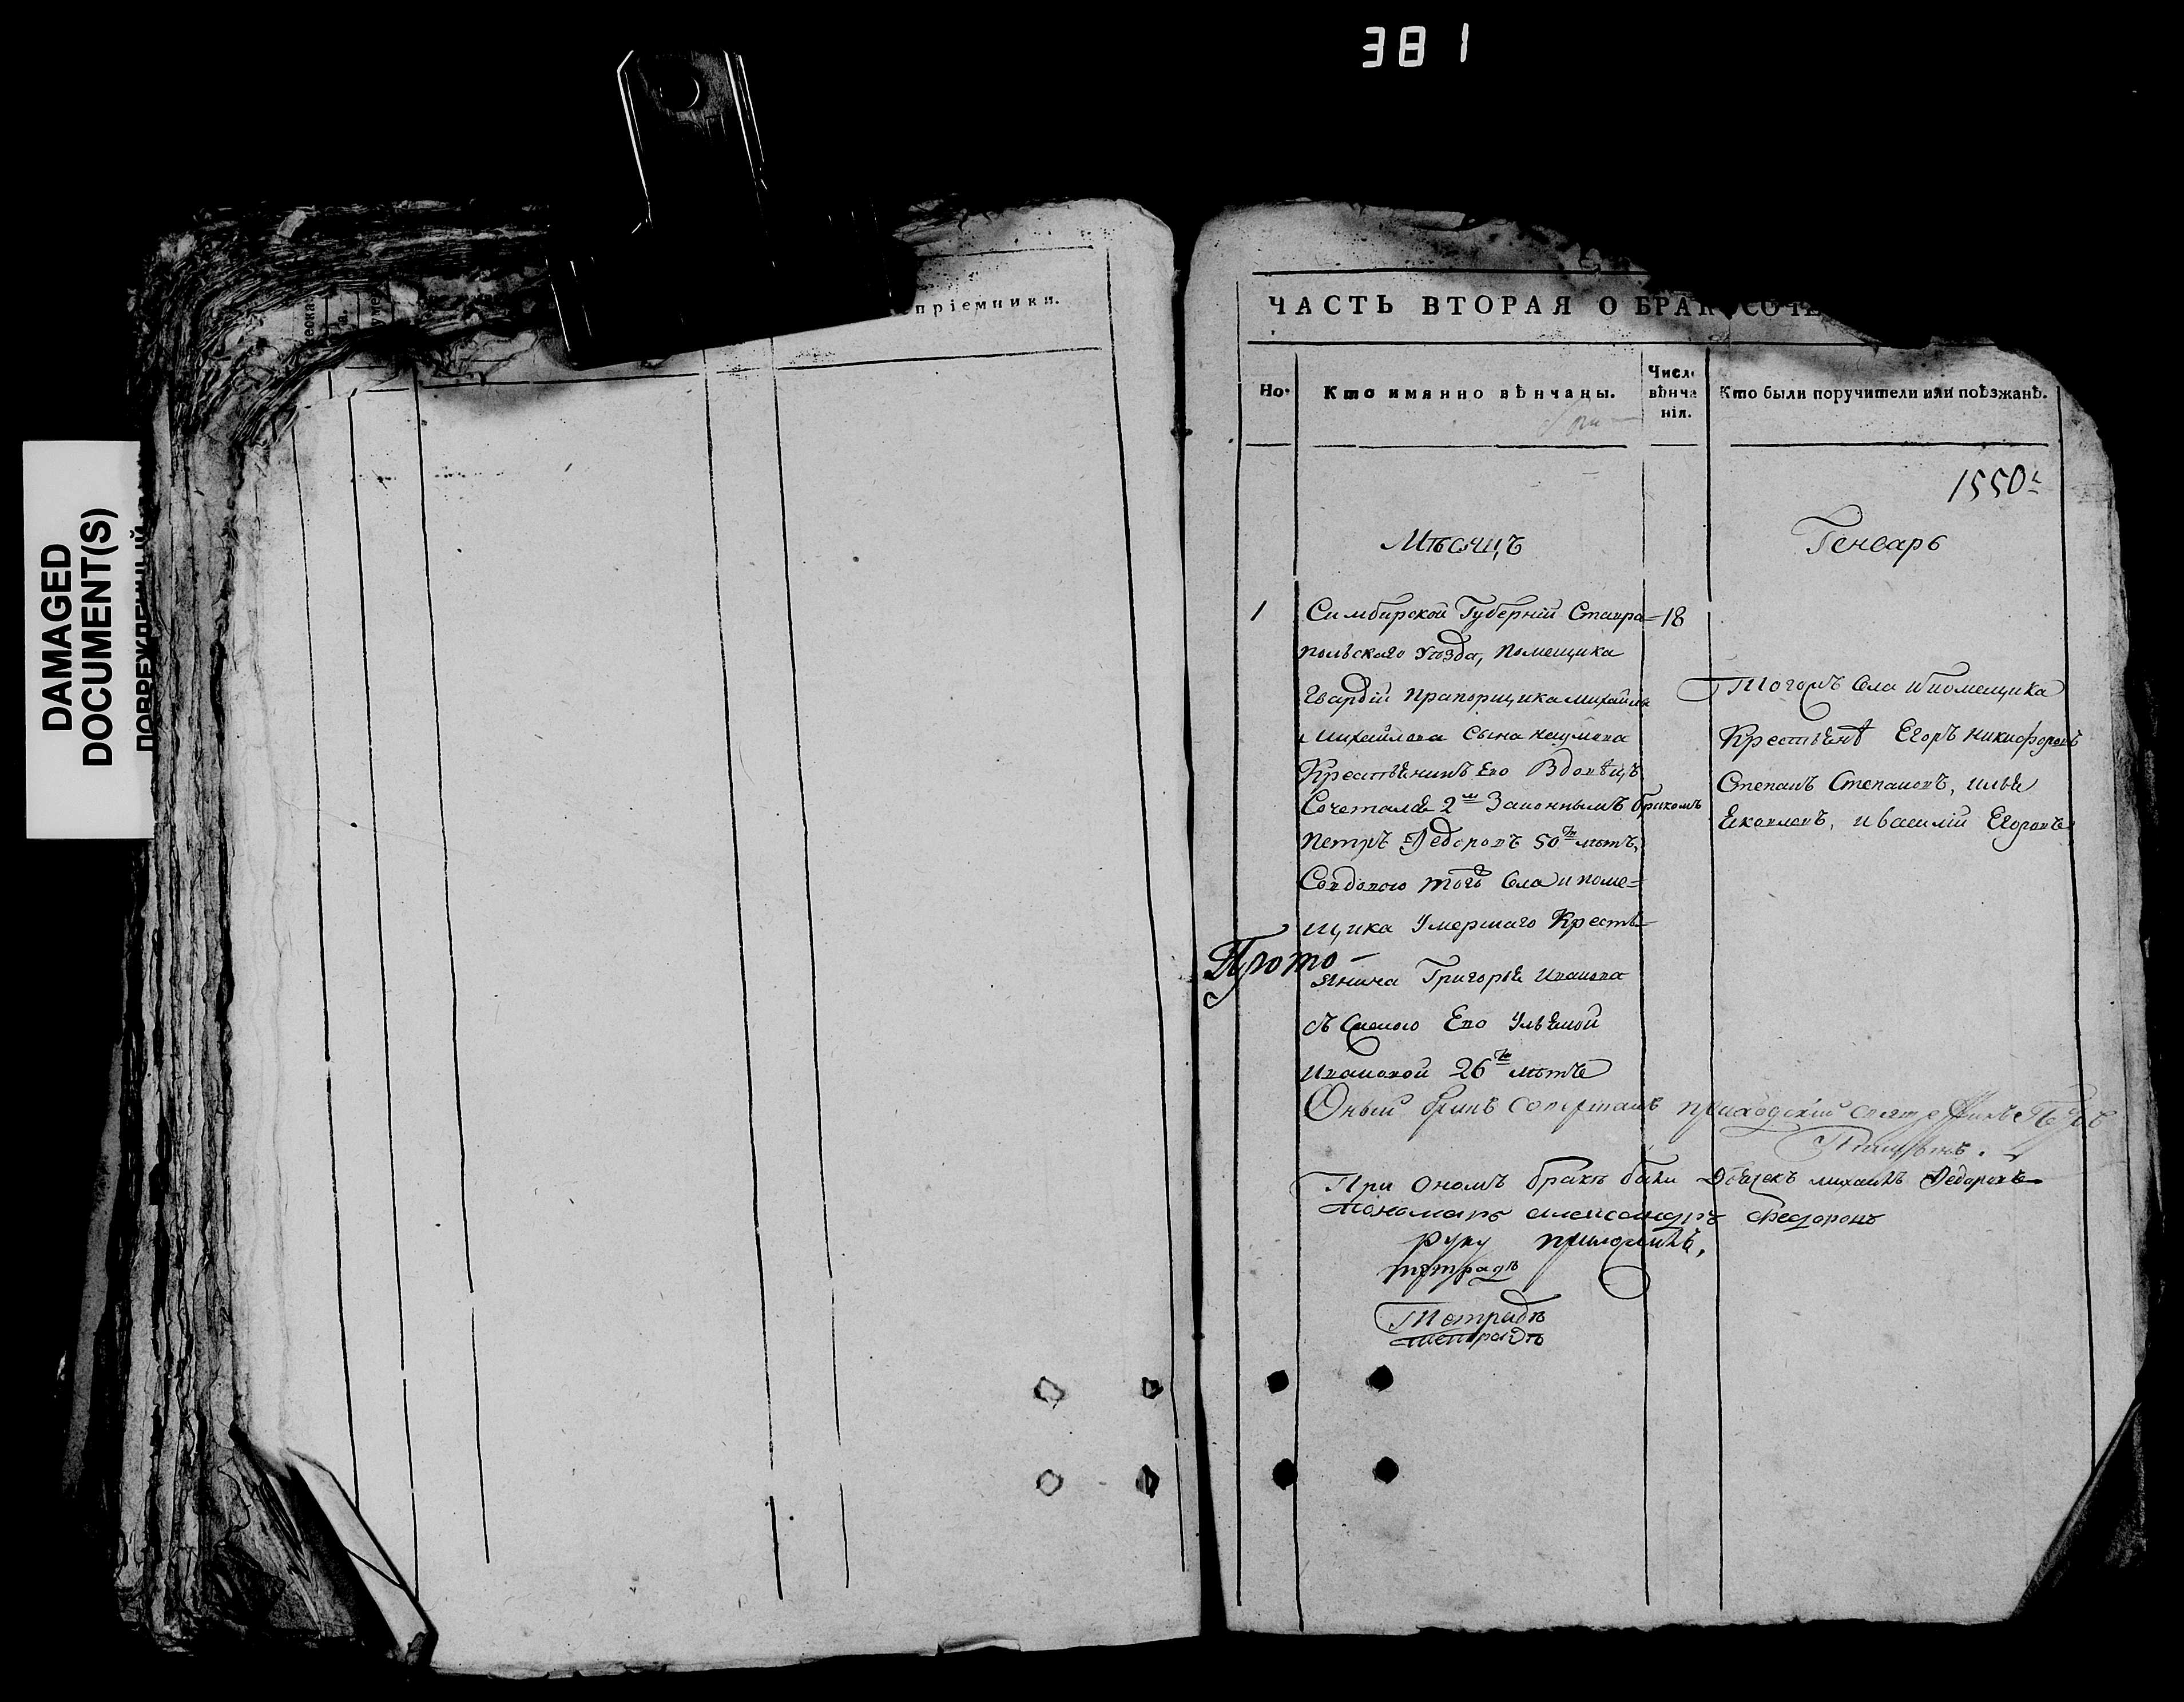 381
DAMAGED
DOCUMENT(S)
пріемники.
ЧАСТЬ ВТОРАЯ О БРАКОСОЧЕ
Но. Кто имянно вѣнчаны. Числ вѣнча нія. Кто были поручители или поѣзжанѣ.
1550
Мѣсяцъ Генварь
1 Симбирской Губерніи Ставро= 18
польскаго Уѣзда, помещика
Гвардіи прапорщика михайла
михайлова сына наумова
Крестьенинъ Ево Вдовецъ
Сочетался 2м Законнымъ бракомъ
петръ Федоровъ 50ти лѣтъ,
Совдовою того Села и поме=
щика Умершаго Кресть
янина Григорья Иванова
съ Ево Ульяной
Ивановой 26ти лѣтъ
Тогожъ Села ипомещика
Крестьянѣ Егоръ никифоровъ
Степанъ Степановъ, илья
Яковлевъ, ивасилій Егоровъ
Прото-
Оный бракъ приходскій
При ономъ бракѣ были Дьячекъ михаилъ Федоровъ
пономарь александръ Федоровъ
руку приложилъ,
тетрадь
Тетрадь